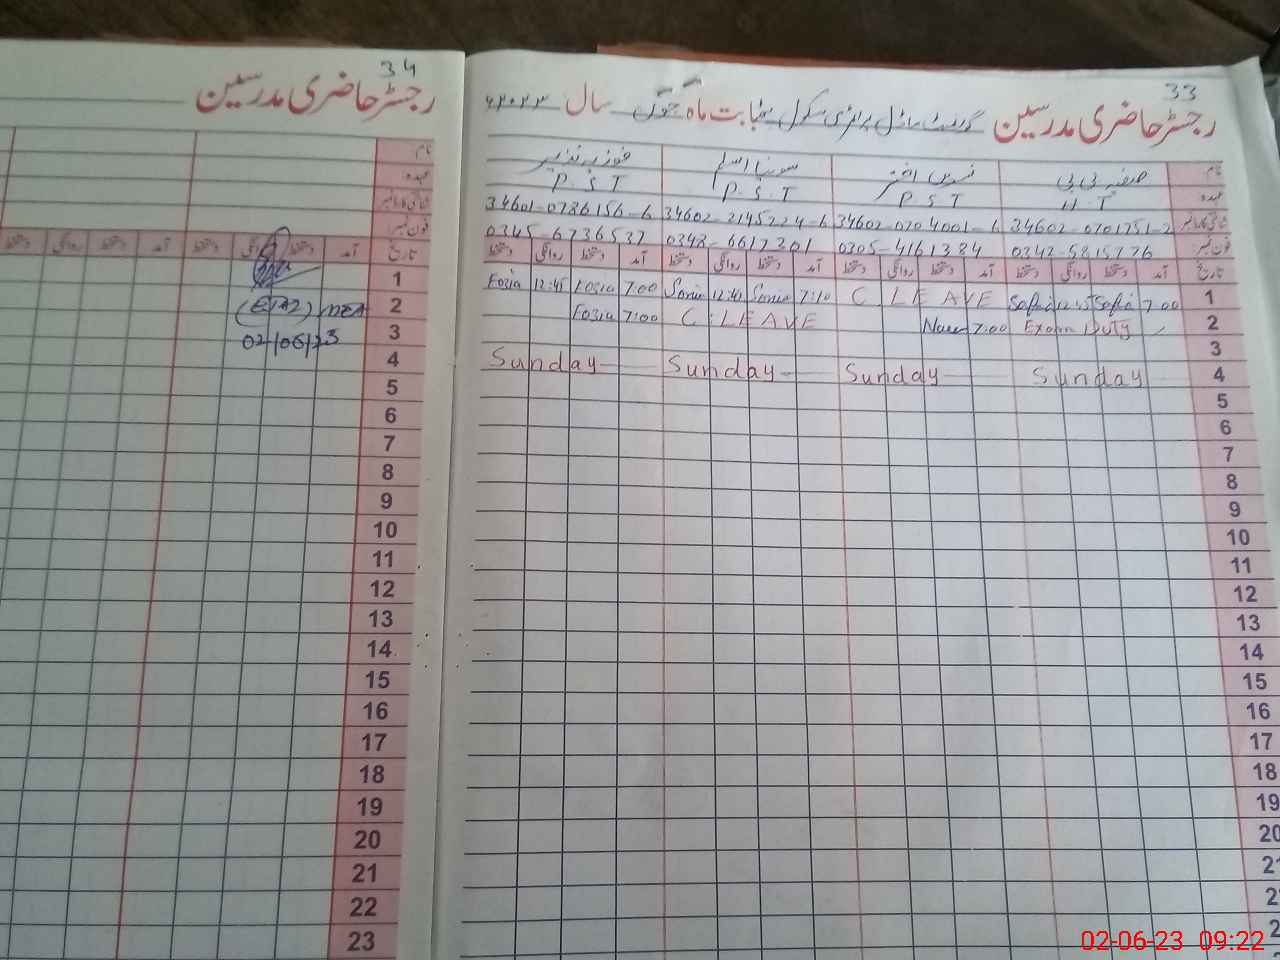 33
رجسٹر حاضری مدرسین گورنمنٹ ماڈل پرائمری سکول بابت ماہ جون سال ۲۰۲۳ء
نام صفیہ بی بی نسرین اختر سونیا اسلم فوزیہ نذیر
عہدہ H T P S T P.S.T P.S.T
شناختی کارڈ نمبر 34602-0701751-2 34602-0704001-6 34602-2145224-6 34601-0786156-6
فون نمبر 0342-5815776 0305-4161384 0348-6617301 0345-6736537
تاریخ آمد دستخط روانگی دستخط آمد دستخط روانگی دستخط آمد دستخط روانگی دستخط آمد دستخط روانگی دستخط
1 7:00 Safia 12:45 Safia C LEAVE 7:10 Sonia 12:45 Sonia 7:00 Fozia 12:45 Fozia
2 Exam Duty 7:00 C.LEAVE 7:00 Fozia
3
4 Sunday Sunday Sunday Sunday
5
6
7
8
9
10
11
12
13
14
15
16
17
18
19
20
34
رجسٹر حاضری مدرسین
نام
عہدہ
شناختی کارڈ نمبر
فون نمبر
تاریخ آمد دستخط روانگی دستخط آمد دستخط روانگی دستخط
1
2
3 02/06/23
4
5
6
7
8
9
10
11
12
13
14
15
16
17
18
19
20
21
22
23
02-06-23 09:22